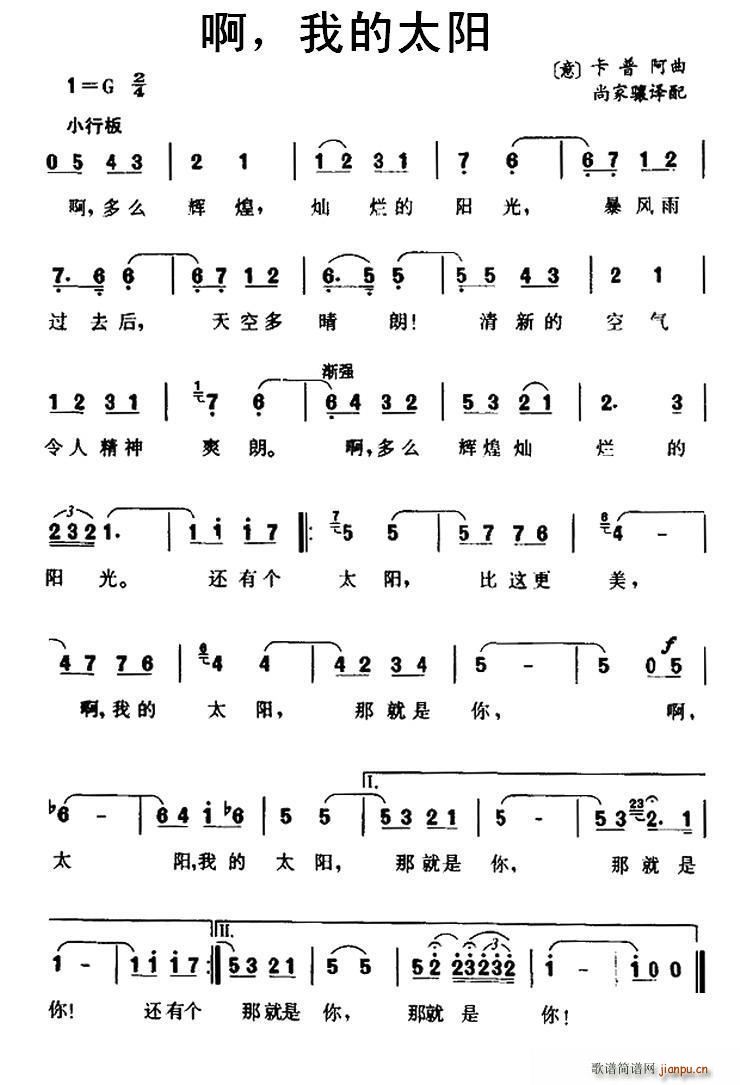 啊，我的太阳
1=G 2/4
〔意〕卡普阿曲
尚家骧译配
小行板
0 5 4 3 | 2 1 | 1 2 3 1 | 7 6 | 6 7 1 2 |
啊，多么 辉 煌， 灿 烂的 阳 光， 暴风雨
7. 6 6 | 6 7 1 2 | 6. 5 5 | 5 5 4 3 | 2 1
过去后， 天空多 晴 朗！ 清新的 空 气
渐强
1 2 3 1 | 1 7 6 | 6 4 3 2 | 5 3 2 1 | 2. 3
令人精神 爽 朗。 啊，多么 辉煌灿 烂 的
3
2 3 2 1. | 1 1 1 7 |: 7 5 5 | 5 7 7 6 | 6 4 - |
阳 光。 还有个 太 阳， 比这更 美，
4 7 7 6 | 6 4 4 | 4 2 3 4 | 5 - | 5 f 0 5 |
啊，我的 太 阳， 那就是 你， 啊，
I.
♭6 - | 6 4 1 ♭6 | 5 5 | 5 3 2 1 | 5 - | 5 3 23 2. 1 |
太 阳，我的 太 阳， 那就是 你， 那就是
II.
1 - | 1 1 1 7 :| 5 3 2 1 | 5 5 | 5 2 2 3 2 3 2 | 1 - | 1 0 0 |
3
你！ 还有个 那就是 你， 那就 是 你！
歌谱简谱网 jianpu.cn